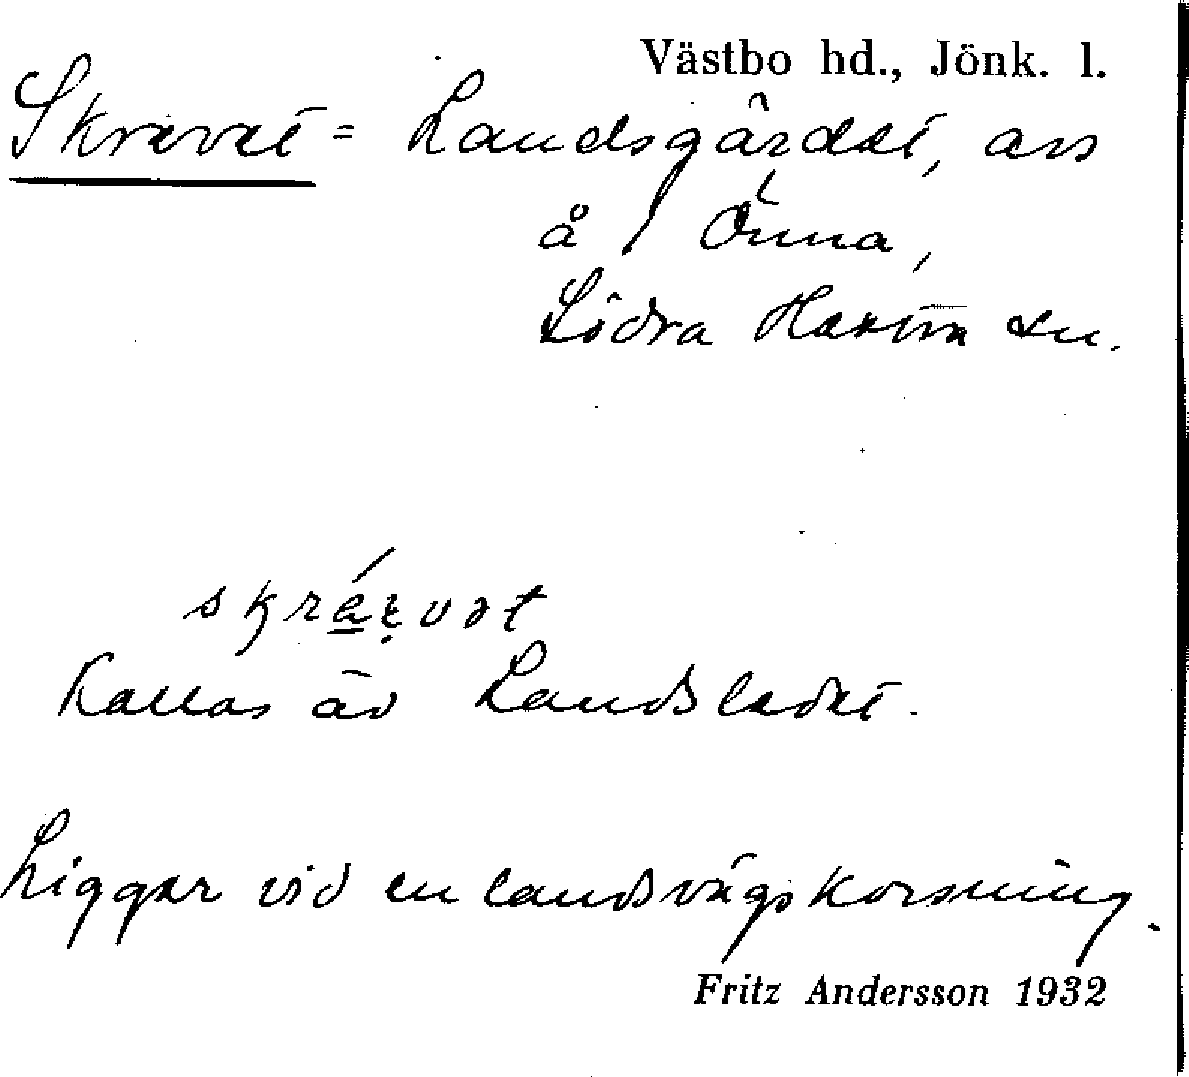 Västbo hd., Jönk. l.
Skrevet = Landsgärdet, avs
å Önna,
Södra Hestra sn.
Kallas äv Landsledet.
Ligger vid en landsvägskorsning.
Fritz Andersson 1932